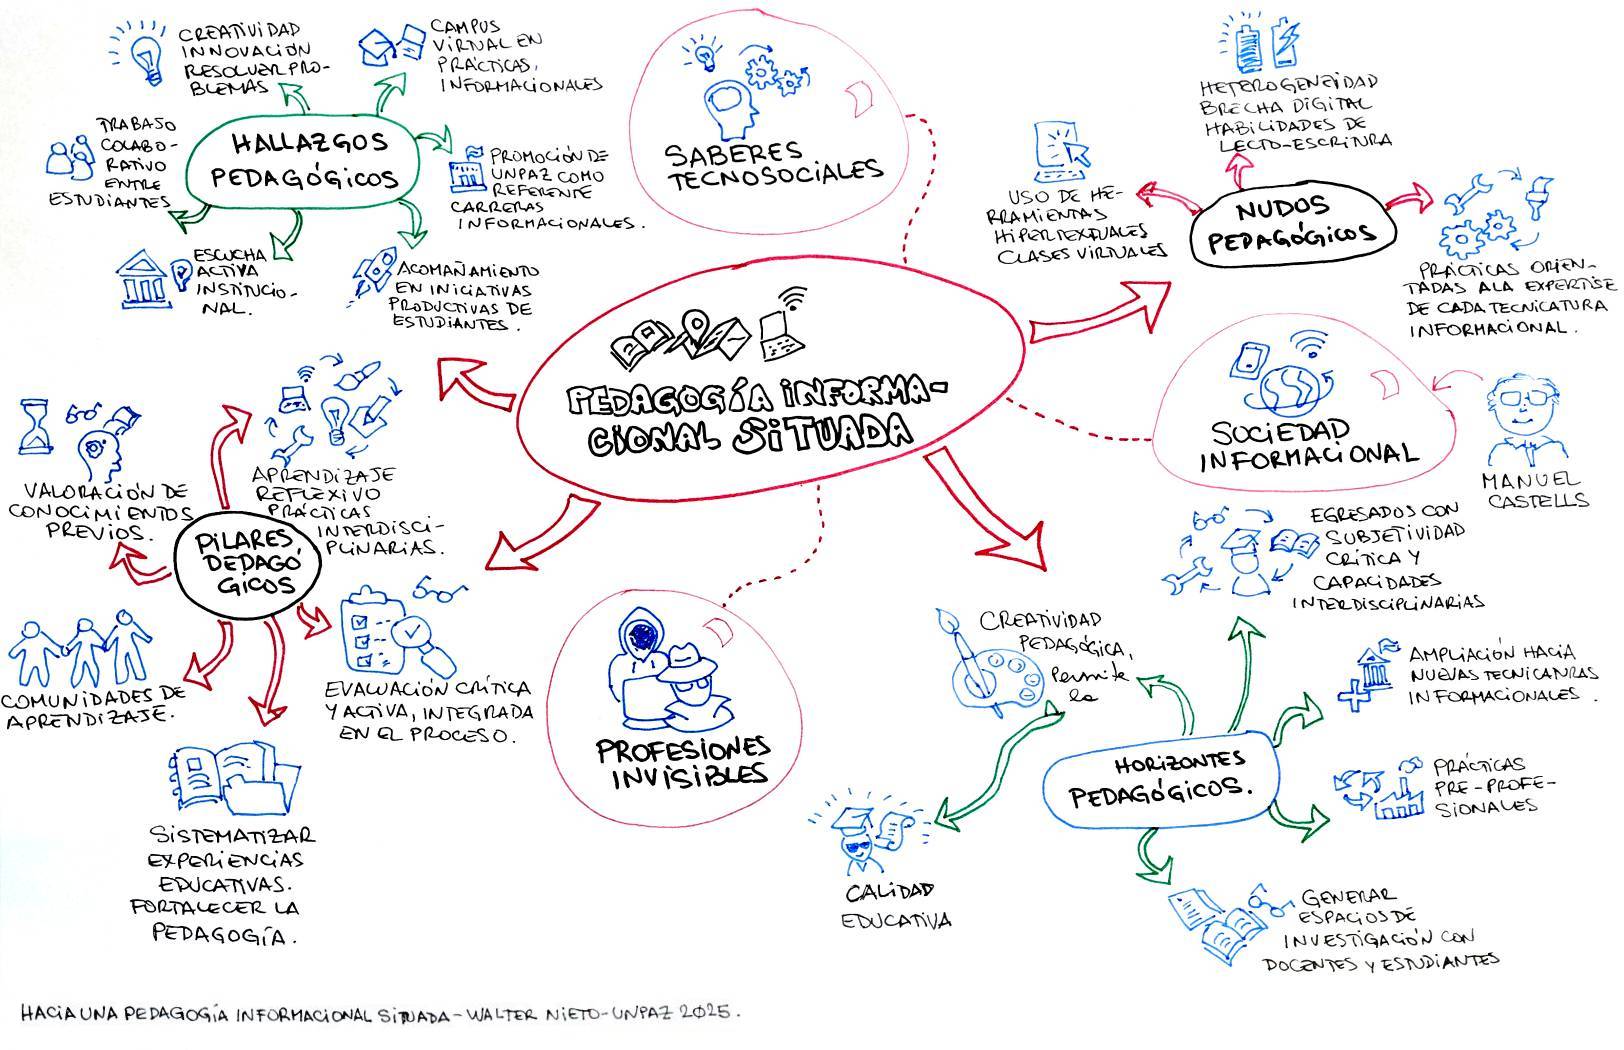 CREATIVIDAD
INNOVACIÓN
RESOLVER PRO-
BLEMAS
CAMPUS
VIRTUAL EN
PRÁCTICAS,
INFORMACIONALES
TRABAJO
COLABO-
RATIVO
ENTRE
ESTUDIANTES
HALLAZGOS
PEDAGÓGICOS
PROMOCIÓN DE
UNPAZ COMO
REFERENTE
CARRERAS
INFORMACIONALES.
ESCUCHA
ACTIVA
INSTITUCIO-
NAL.
ACOMAÑAMIENTO
EN INICIATIVAS
PRODUCTIVAS DE
ESTUDIANTES.
SABERES
TECNOSOCIALES
HETEROGENEIDAD
BRECHA DIGITAL
HABILIDADES DE
LECTO-ESCRITURA
USO DE HE-
RRAMIENTAS
HIPERTEXTUALES
CLASES VIRTUALES
NUDOS
PEDAGÓGICOS
PRÁCTICAS ORIEN-
TADAS A LA EXPERTISE
DE CADA TECNICATURA
INFORMACIONAL.
PEDAGOGÍA INFORMA-
CIONAL SITUADA
SOCIEDAD
INFORMACIONAL
MANUEL
CASTELLS
VALORACIÓN DE
CONOCIMIENTOS
PREVIOS.
APRENDIZAJE
REFLEXIVO
PRÁCTICAS
INTERDISCI-
PLINARIAS.
PILARES
PEDAGÓ
GICOS
COMUNIDADES DE
APRENDIZAJE.
EVALUACIÓN CRÍTICA
Y ACTIVA, INTEGRADA
EN EL PROCESO.
SISTEMATIZAR
EXPERIENCIAS
EDUCATIVAS.
FORTALECER LA
PEDAGOGÍA.
PROFESIONES
INVISIBLES
EGRESADOS CON
SUBJETIVIDAD
CRÍTICA Y
CAPACIDADES
INTERDISCIPLINARIAS
CREATIVIDAD
PEDAGÓGICA,
Permite
la
AMPLIACIÓN HACIA
NUEVAS TECNICATURAS
INFORMACIONALES.
HORIZONTES
PEDAGÓGICOS.
PRÁCTICAS
PRE-PROFE-
SIONALES
CALIDAD
EDUCATIVA
GENERAR
ESPACIOS DE
INVESTIGACIÓN CON
DOCENTES Y ESTUDIANTES
HACIA UNA PEDAGOGÍA INFORMACIONAL SITUADA - WALTER NIETO - UNPAZ 2025.